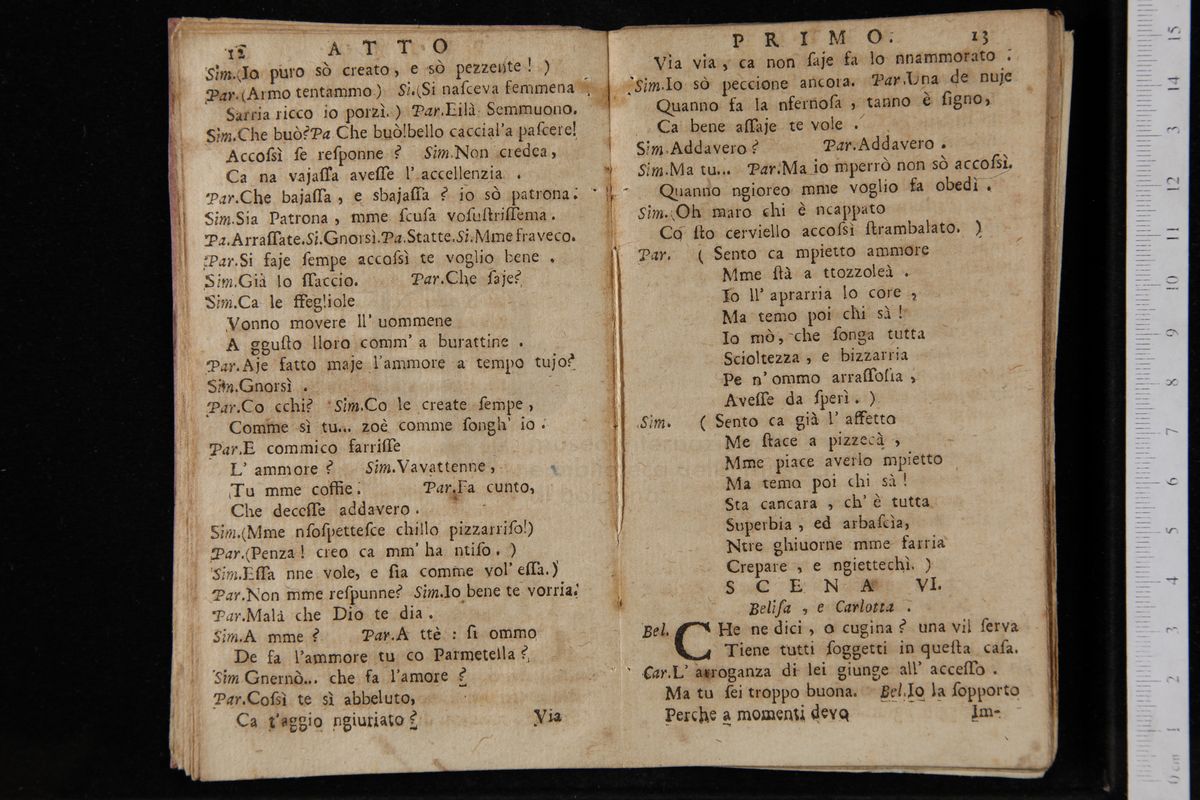 12 ATTO
Sim.(Io puro sò creato, e sò pezzente! )
Par.(Armo tentammo) Si.(Si naſceva femmena
Sarria ricco io porzì. ) Par.Eilà Semmuono.
Sim.Che buò? Pa Che buò! bello caccial'a paſcere!
Accoſsì ſe reſponne ? Sim.Non credea,
Ca na vajaſſa aveſſe l' accellenzia .
Par.Che bajaſſa , e sbajaſſa ? io sò patrona.
Sim.Sia Patrona , mme ſcuſa voſuſtriſſema .
Pa.Arraſſate.Si.Gnorsì.Pa.Statte.Si.Mme fraveco.
Par.Si ſaje ſempe accoſsì te voglio bene .
Sim.Già lo ſſaccio. Par.Che ſaje?
Sim.Ca le ffegliole
Vonno movere ll' uommene
A gguſto lloro comm' a burattine .
Par.Aje fatto maje l'ammore a tempo tujo?
Sim.Gnorsì .
Par.Co cchi? Sim.Co le create ſempe ,
Comme sì tu... zoè comme ſongh' io .
Par.E commico farriſſe
L' ammore ? Sim.Vavattenne ,
Tu mme coffie . Par.Fa cunto,
Che deceſſe addavero .
Sim.(Mme nſoſpetteſce chillo pizzarriſo!)
Par.(Penza ! creo ca mm' ha ntiſo . )
Sim.Eſſa nne vole, e ſia comme vol' eſſa.)
Par.Non mme reſpunne? Sim.Io bene te vorria.
Par.Malà che Dio te dia .
Sim.A mme ? Par.A ttè : ſi ommo
De fa l'ammore tu co Parmetella ?
Sim Gnernò... che fa l'amore ?
Par.Coſsì te sì abbeluto,
Ca t'aggio ngiuriato ? Via
PRIMO. 13
Via via , ca non ſaje fa lo nnammorato .
Sim.Io sò peccione ancora. Par.Una de nuje
Quanno fa la nfernoſa , tanno è ſigno,
Ca bene aſſaje te vole .
Sim.Addavero ? Par.Addavero .
Sim.Ma tu... Par.Ma io mperrò non sò accoſsì.
Quanno ngioreo mme voglio fa obedì .
Sim.(Oh maro chi è ncappato
Co ſto cerviello accoſsi ſtrambalato. )
Par. ( Sento ca mpietto ammore
Mme ſtà a ttozzoleà .
Io ll' aprarria lo core ,
Ma temo poi chi sà !
Io mò, che ſonga tutta
Scioltezza , e bizzarria
Pe n' ommo arraſſoſia ,
Aveſſe da ſperì . )
Sim. ( Sento ca già l' affetto
Me ſtace a pizzecà ,
Mme piace averlo mpietto
Ma temo poi chi sà !
Sta cancara , ch' è tutta
Superbia , ed arbaſcìa,
Ntre ghiuorne mme farria
Crepare , e ngiettechì. )
SCENA VI.
Beliſa , e Carlotta .
Bel. CHe ne dici , o cugina ? una vil ſerva
Tiene tutti ſoggetti in queſta caſa.
Car.L' arroganza di lei giunge all' acceſſo .
Ma tu ſei troppo buona. Bel.Io la ſopporto
Perche a momenti devo Im-
15
14
13
12
11
10
9
8
7
6
5
4
3
2
1
0 cm